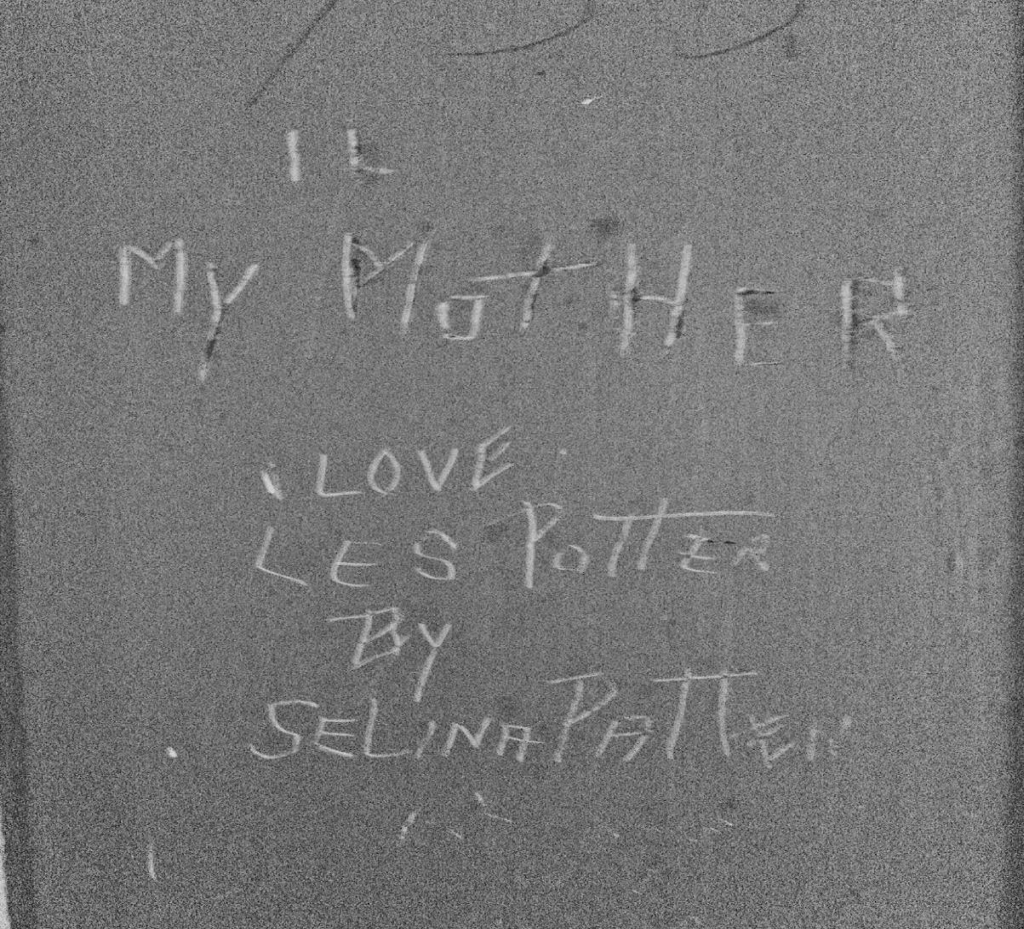 IL
My MotHER
i LOVE
LES PoTTER
By
SELINA PATTEN